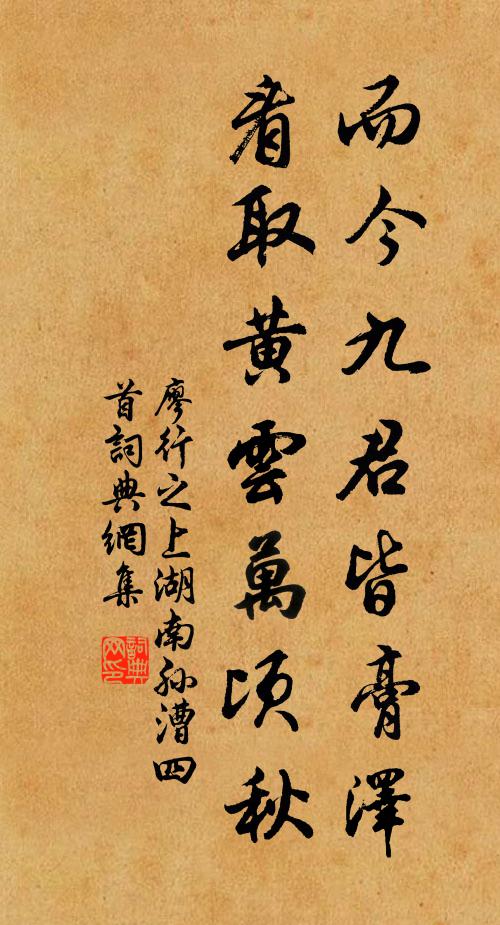 而今九君皆膏澤
看取黃雲萬頃秋
廖行之上湖南孫漕四
首詞典網集
詞典網印